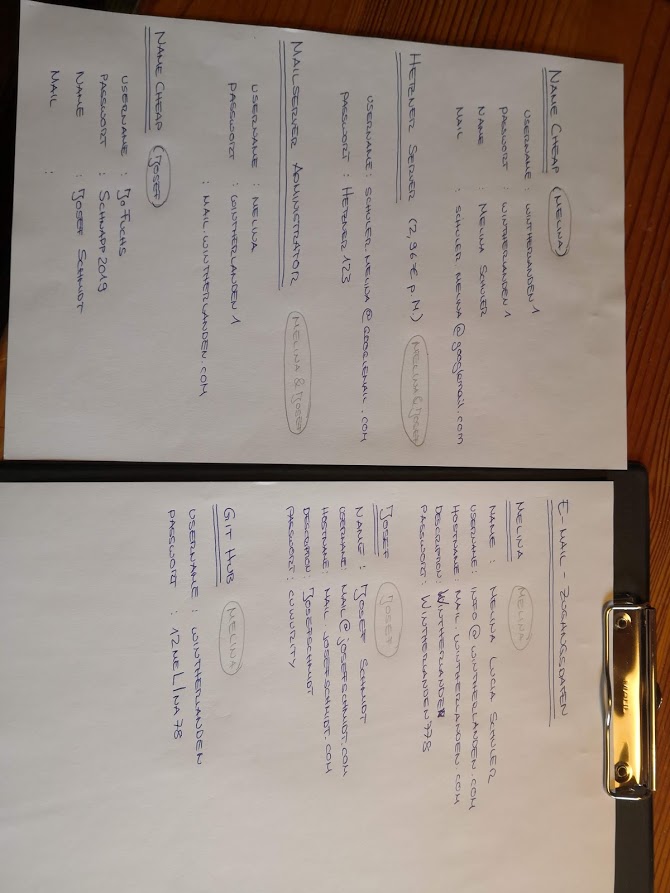 NAME CHEAP (MELINA)
USERNAME : WINTHERLANDEN1
PASSWORT : WINTHERLANDEN1
NAME : MELINA SCHULER
MAIL : SCHULER.MELINA@googlemail.com
HETZNER SERVER (2,96 € p M) MELINA & JOSEF
USERNAME : SCHULER.MELINA@GOOGLEMAIL.COM
PASSWORT : HETZNER123
MAILSERVER ADMINISTRATOR MELINA & JOSEF
USERNAME : MELINA
PASSWORT : WINTHERLANDEN1
: MAIL.WINTHERLANDEN.COM
NAME CHEAP (JOSEF)
USERNAME : JOFUCHS
PASSWORT : SCHNAPP2019
NAME : JOSEF SCHMIDT
MAIL :
E-MAIL-ZUGANGSDATEN
MELINA MELINA
NAME : MELINA LUCIA SCHULER
USERNAME: INFO@WINTHERLANDEN.COM
HOSTNAME: MAIL.WINTHERLANDEN.COM
DESCRIPTION: WINTHERLANDER
PASSWORT: WINTHERLANDEN778
JOSEF JOSEF
NAME : JOSEF SCHMIDT
USERNAME: MAIL@JOSEFSCHMIDT.COM
HOSTNAME: MAIL.JOSEFSCHMIDT.COM
DESCRIPTION: JOSEFSCHMIDT
PASSWORT:
GIT HUB MELINA
USERNAME : WINTHERLANDEN
PASSWORT :